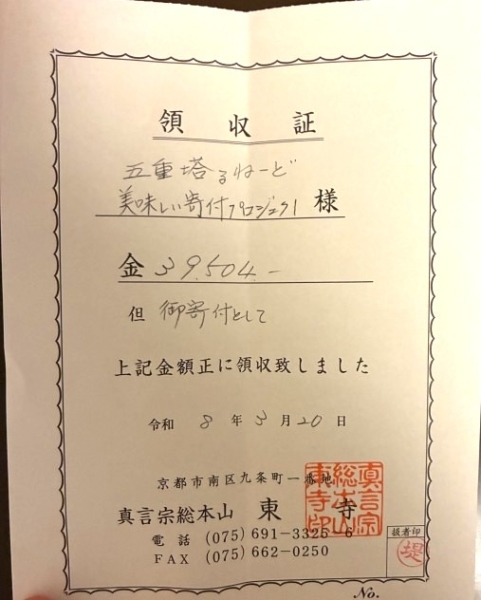 領収証
五重塔るねーど
美味しい寄付プロジェクト 様
金 39,504.-
但 御寄付として
上記金額正に領収致しました
令和 8 年 3 月 20 日
京都市南区九条町一番地
真言宗総本山 東寺
真言宗総本山東寺印
電話 (075) 691-3325 6
FAX (075) 662-0250
扱者印
堤
No.